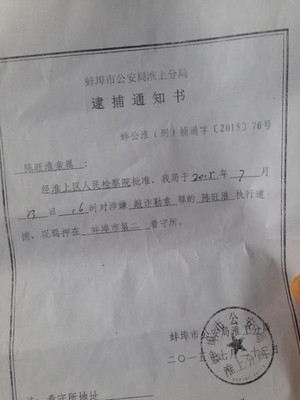 蚌埠市公安局淮上分局
逮捕通知书
蚌公淮(刑)捕通字〔2015〕76号
陈旺淮家属：
经淮上区人民检察院批准，我局于2015年7月
13日16时对涉嫌敲诈勒索罪的陈旺淮执行逮
捕，现羁押在蚌埠市第二看守所。
蚌埠市公安局淮上
二〇一五年七月十
看守所地址